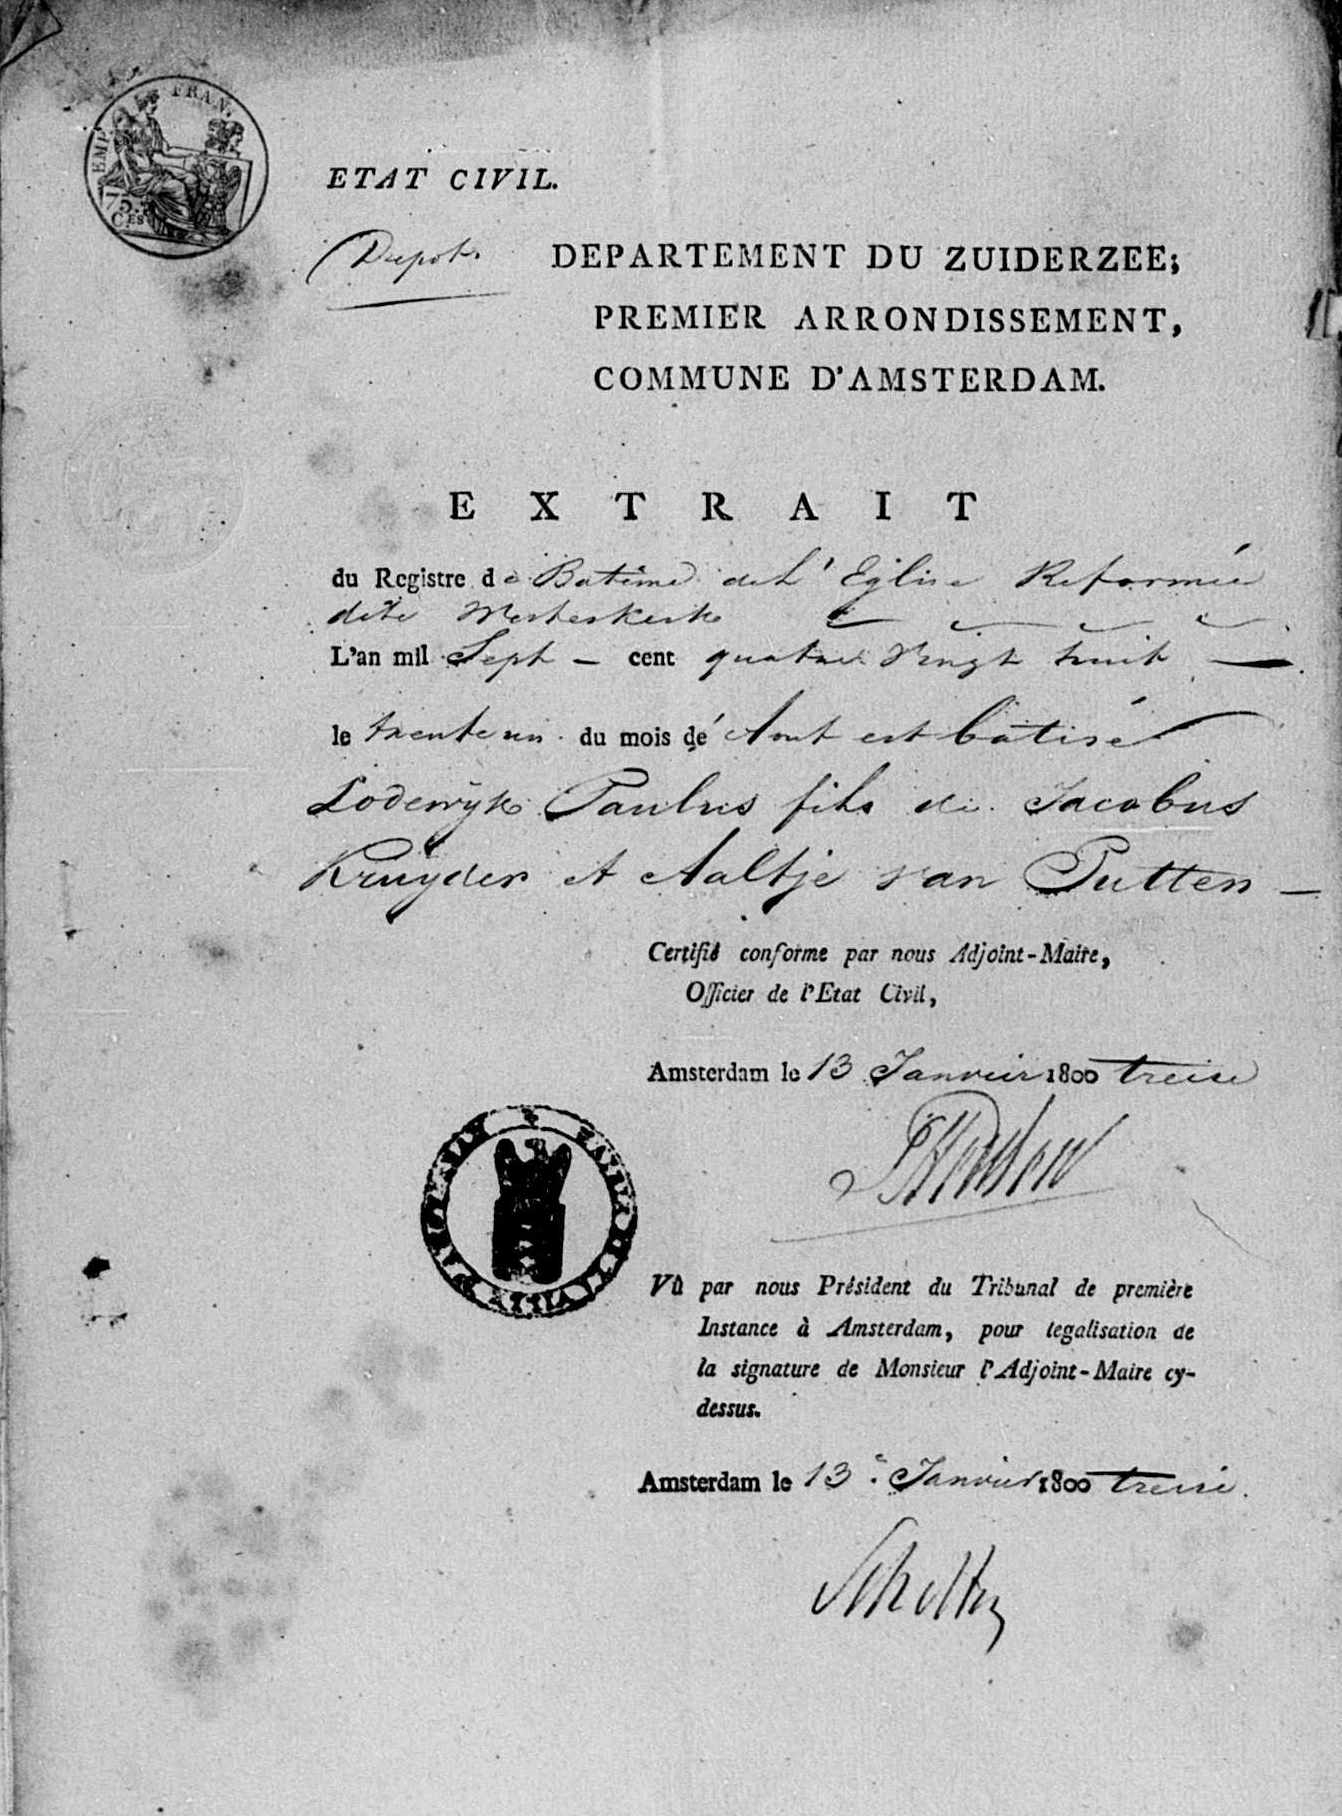 EMP. FRAN.
75
C.ES
ETAT CIVIL.
Depot.
DEPARTEMENT DU ZUIDERZEE;
PREMIER ARRONDISSEMENT,
COMMUNE D'AMSTERDAM.
EXTRAIT
du Registre de Batême de L'Eglise Reformée
dite Westerkerk
L'an mil Sept - cent quatre Vingt huit
le trente un du mois de Aout est batisé
Lodewyk Paulus fils de Jacobus
Kruyder et Aaltje van Putten -
Certifié conforme par nous Adjoint-Maire,
Officier de l'Etat Civil,
Amsterdam le 13 Janvier 1800 treise
Vû par nous Président du Tribunal de première
Instance à Amsterdam, pour legalisation de
la signature de Monsieur l'Adjoint-Maire cy-
dessus.
Amsterdam le 13 Janvier 1800 treise.
Scholten